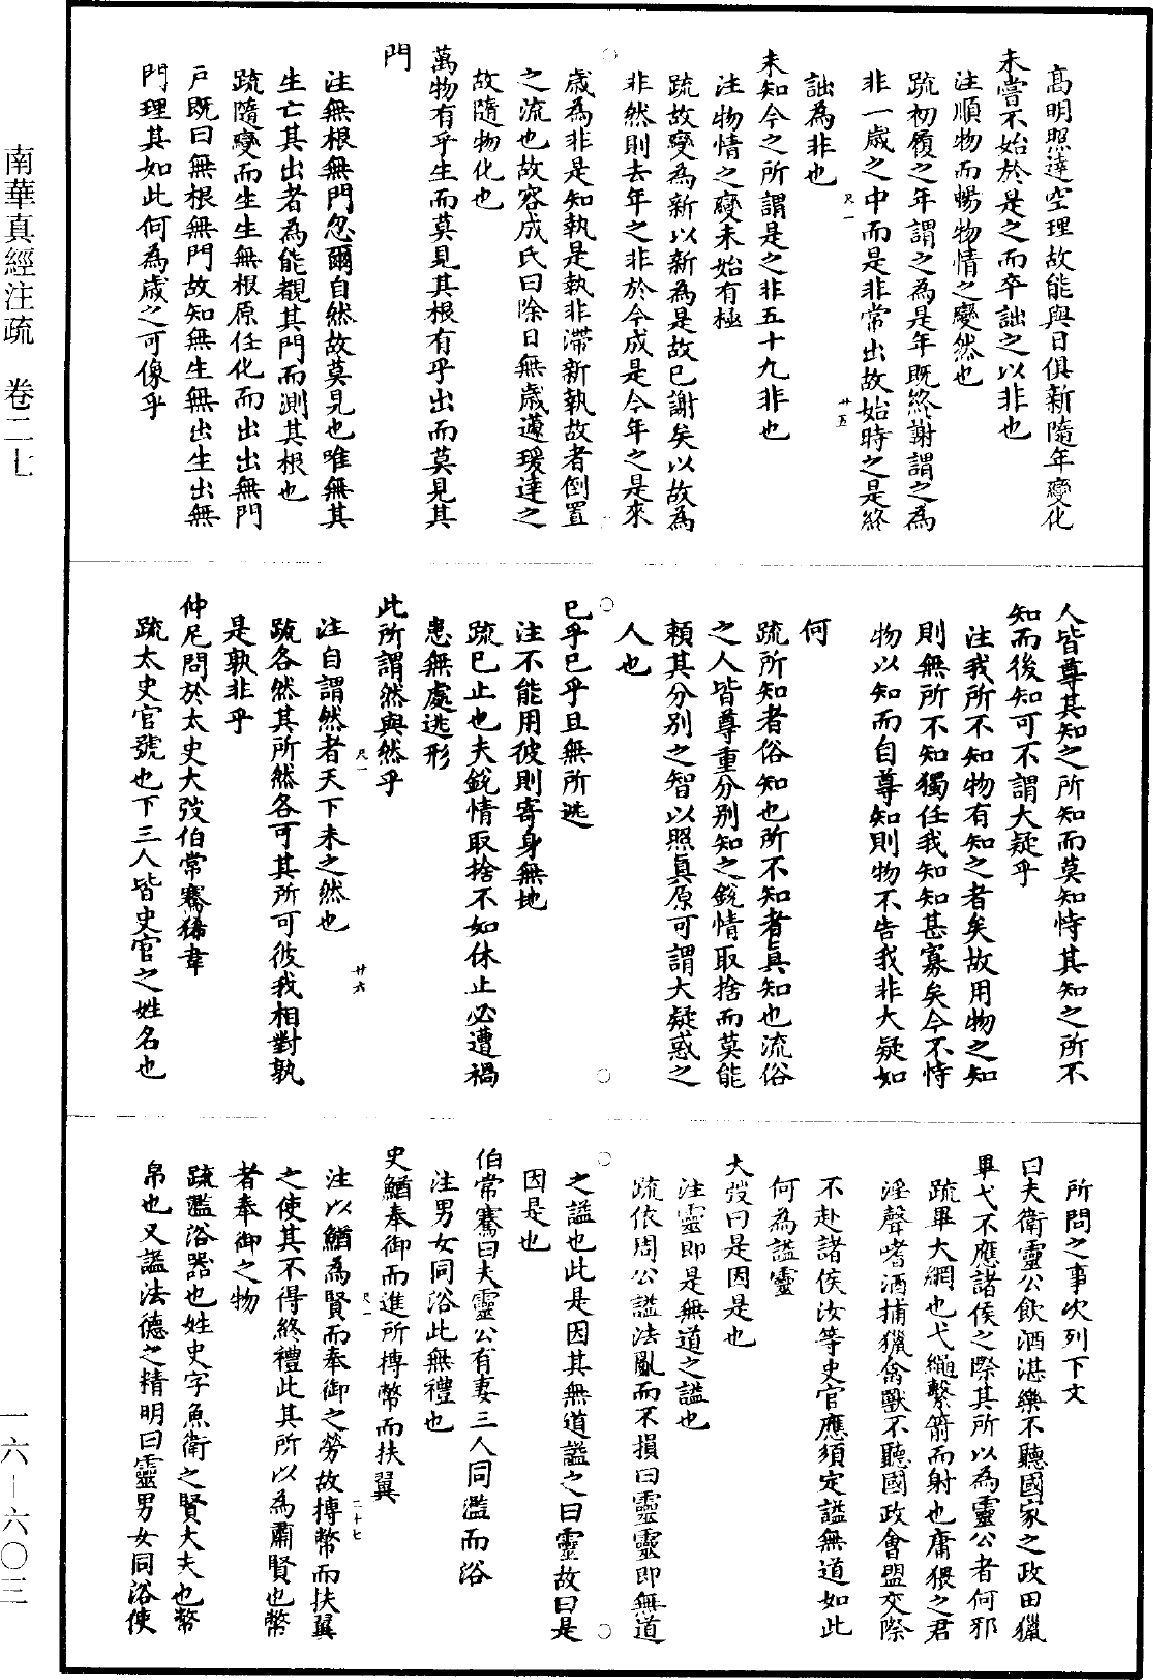 南華真經注疏　卷二七
高明照達空理故能與日俱新隨年變化
未嘗不始於是之而卒詘之以非也
注順物而暢物情之變然也
疏初履之年謂之為是年既終謝謂之為
非一歲之中而是非常出故始時之是終
詘為非也
尺一
廿五
未知今之所謂是之非五十九非也
注物情之變未始有極
疏故變為新以新為是故已謝矣以故為
非然則去年之非於今成是今年之是來
歲為非是知執是執非滯新執故者倒置
之流也故容成氏曰除日無歲蘧瑗達之
故隨物化也
萬物有乎生而莫見其根有乎出而莫見其
門
注無根無門忽爾自然故莫見也唯無其
生亡其出者為能覩其門而測其根也
疏隨變而生生無根原任化而出出無門
戶既曰無根無門故知無生無出生出無
門理其如此何為歲之可像乎
人皆尊其知之所知而莫知恃其知之所不
知而後知可不謂大疑乎
注我所不知物有知之者矣故用物之知
則無所不知獨任我知知甚寡矣今不恃
物以知而自尊知則物不告我非大疑如
何
疏所知者俗知也所不知者真知也流俗
之人皆尊重分別知之銳情取捨而莫能
賴其分別之智以照真原可謂大疑惑之
人也
已乎已乎且無所逃
注不能用彼則寄身無地
疏已止也夫銳情取捨不如休止必遭禍
患無處逃形
此所謂然與然乎
尺一
廿六
注自謂然者天下未之然也
疏各然其所然各可其所可彼我相對孰
是孰非乎
仲尼問於太史大弢伯常騫狶韋
疏太史官號也下三人皆史官之姓名也
所問之事次列下文
曰夫衛靈公飲酒湛樂不聽國家之政田獵
畢弋不應諸侯之際其所以為靈公者何邪
疏畢大網也弋繩繫箭而射也庸猥之君
淫聲嗜酒捕獵禽獸不聽國政會盟交際
不赴諸侯汝等史官應須定謚無道如此
何為謚靈
大弢曰是因是也
注靈即是無道之謚也
疏依周公謚法亂而不損曰靈靈即無道
之謚也此是因其無道謚之曰靈故曰是
因是也
伯常騫曰夫靈公有妻三人同濫而浴
注男女同浴此無禮也
史鰌奉御而進所搏幣而扶翼
尺一
二十七
注以鰌為賢而奉御之勞故搏幣而扶翼
之使其不得終禮此其所以為肅賢也幣
者奉御之物
疏濫浴器也姓史字魚衛之賢大夫也幣
帛也又謚法德之精明曰靈男女同浴使
一六—六〇三